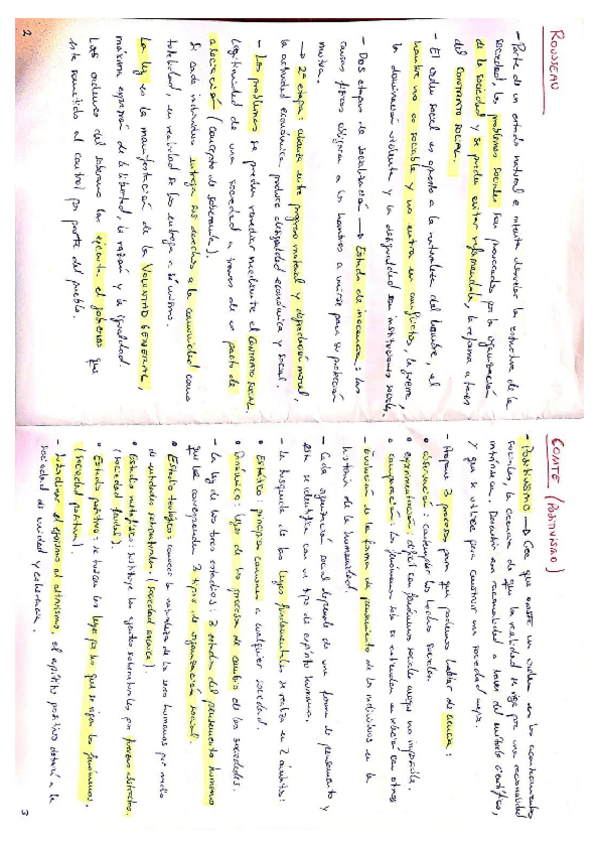 ROUSSEAU
- Parte de un estado natural e intenta desvelar la estructura de la
sociedad, los problemas sociales son provocados por la organización
de la sociedad y se pueden evitar reformándola, la reforma a través
del CONTRATO SOCIAL.
- El orden social es opuesto a la naturaleza del hombre, el
hombre no es sociable y no entra en conflictos, la guerra,
la dominación violenta y la desigualdad son instituciones sociales.
- Dos etapas de socialización → Estado de inocencia: las
causas físicas obligaron a los hombres a unirse para su protección
mutua.
→ 2ª etapa: abierta entre progreso material y depravación moral,
la actividad económica produce desigualdad económica y social.
- Los problemas se pueden remediar mediante el CONTRATO SOCIAL.
Legitimidad de una sociedad a través de un pacto de
asociación (concepto de soberanía).
Si cada individuo entrega sus derechos a la comunidad como
totalidad, en realidad se los entrega a sí mismo
La ley es la manifestación de la VOLUNTAD GENERAL,
máxima expresión de la libertad, la razón y la igualdad.
Las órdenes del soberano las ejecuta el gobierno que
está sometido al control por parte del pueblo.
2
COMTE (POSITIVISMO)
- POSITIVISMO → Cree que existe un orden en los acontecimientos
sociales, la creencia de que la realidad se rige por una racionalidad
intrínseca. Descubrir esa racionalidad a través del método científico,
y que se utilice para construir una sociedad mejor.
- Propone 3 procesos para que podamos hablar de ciencia:
• observación: contemplar los hechos sociales.
• experimentación: difícil en fenómenos sociales aunque no imposible.
• comparación: los fenómenos sólo se entienden en relación con otros
- Evolución de la forma de pensamiento de los individuos en la
historia de la humanidad.
- Cada organización social depende de una forma de pensamiento y
ésta se identifica con un tipo de espíritu humano.
- La búsqueda de las leyes fundamentales se realiza en 2 ámbitos:
• Estático: principios comunes a cualquier sociedad.
• Dinámico: leyes de los procesos de cambio de las sociedades.
- La ley de los tres estadios: 3 estados del pensamiento humano
que le corresponden 3 tipos de organización social.
• Estadio teológico: conocer la naturaleza de los seres humanos por medio
de entidades sobrenaturales. (sociedad
• Estadio metafísico: sustituye los agentes sobrenaturales por fuerzas abstractas.
(sociedad feudal).
• Estadio positivo: se buscan las leyes por las que se rigen los fenómenos.
(sociedad positiva).
- Subordinar el egoísmo al altruismo, el espíritu positivo dotará a la
sociedad de unidad y coherencia.
3